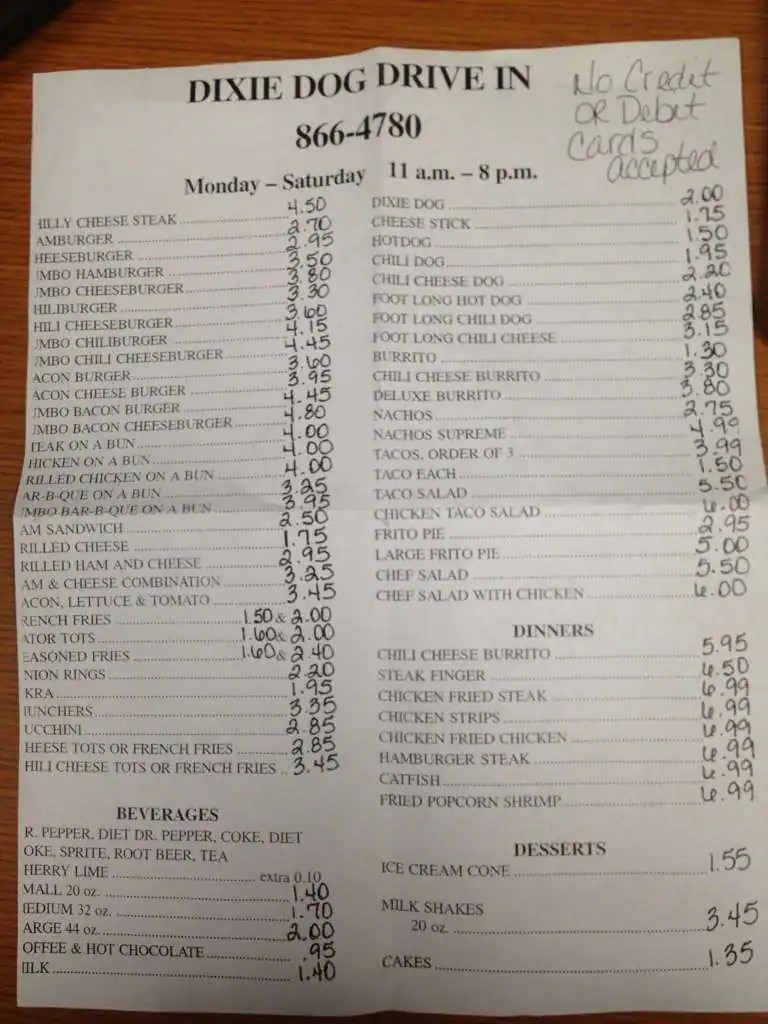 DIXIE DOG DRIVE IN
866-4780
No Credit
OR Debit
Cards
accepted
Monday – Saturday 11 a.m. – 8 p.m.
HILLY CHEESE STEAK 4.50
AMBURGER 2.70
HEESEBURGER 2.95
UMBO HAMBURGER 3.50
UMBO CHEESEBURGER 3.80
HILIBURGER 3.30
HILI CHEESEBURGER 3.60
UMBO CHILIBURGER 4.15
UMBO CHILI CHEESEBURGER 4.45
ACON BURGER 3.60
ACON CHEESE BURGER 3.95
UMBO BACON BURGER 4.45
UMBO BACON CHEESEBURGER 4.80
TEAK ON A BUN 4.00
HICKEN ON A BUN 4.00
RILLED CHICKEN ON A BUN 4.00
AR-B-QUE ON A BUN 3.25
UMBO BAR-B-QUE ON A BUN 3.95
AM SANDWICH 2.50
RILLED CHEESE 1.75
RILLED HAM AND CHEESE 2.95
AM & CHEESE COMBINATION 3.25
ACON, LETTUCE & TOMATO 3.45
RENCH FRIES 1.50 & 2.00
ATOR TOTS 1.60 & 2.00
EASONED FRIES 1.60 & 2.40
NION RINGS 2.20
KRA 1.95
UNCHERS 3.35
UCCHINI 2.85
HEESE TOTS OR FRENCH FRIES 2.85
HILI CHEESE TOTS OR FRENCH FRIES 3.45
BEVERAGES
R. PEPPER, DIET DR. PEPPER, COKE, DIET
OKE, SPRITE, ROOT BEER, TEA
HERRY LIME extra 0.10
MALL 20 oz. 1.40
EDIUM 32 oz. 1.70
ARGE 44 oz. 2.00
OFFEE & HOT CHOCOLATE .95
ILK 1.40
DIXIE DOG 2.00
CHEESE STICK 1.75
HOTDOG 1.50
CHILI DOG 1.95
CHILI CHEESE DOG 2.20
FOOT LONG HOT DOG 2.40
FOOT LONG CHILI DOG 2.85
FOOT LONG CHILI CHEESE 3.15
BURRITO 1.30
CHILI CHEESE BURRITO 3.30
DELUXE BURRITO 3.80
NACHOS 2.75
NACHOS SUPREME 4.99
TACOS, ORDER OF 3 3.99
TACO EACH 1.50
TACO SALAD 5.50
CHICKEN TACO SALAD 6.00
FRITO PIE 2.95
LARGE FRITO PIE 5.00
CHEF SALAD 5.50
CHEF SALAD WITH CHICKEN 6.00
DINNERS
CHILI CHEESE BURRITO 5.95
STEAK FINGER 6.50
CHICKEN FRIED STEAK 6.99
CHICKEN STRIPS 6.99
CHICKEN FRIED CHICKEN 6.99
HAMBURGER STEAK 6.99
CATFISH 6.99
FRIED POPCORN SHRIMP 6.99
DESSERTS
ICE CREAM CONE 1.55
MILK SHAKES
20 oz. 3.45
CAKES 1.35